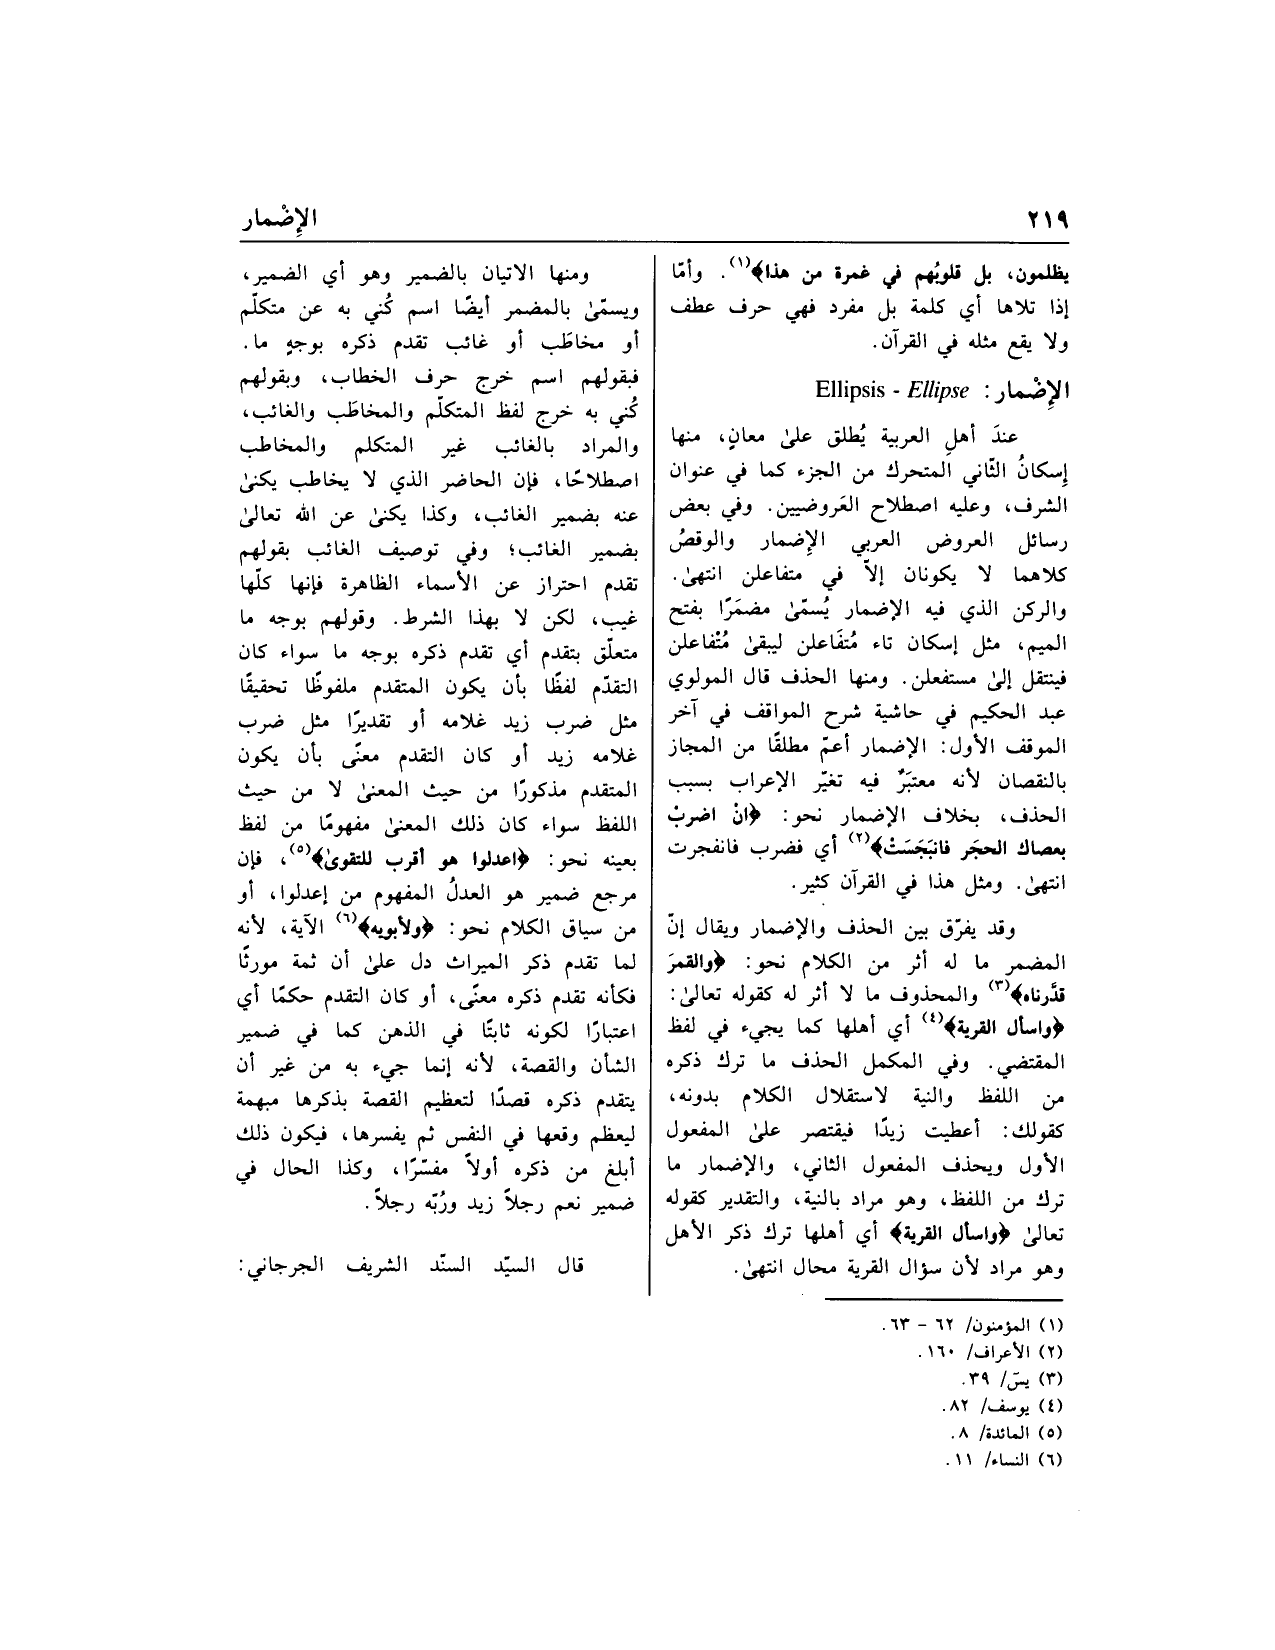 ٢١٩
الإِضْمار
يظلمون، بل قلوبُهم في غمرة من هذا﴾(١). وأمّا
إذا تلاها أي كلمة بل مفرد فهي حرف عطف
ولا يقع مثله في القرآن.
الإِضْمار: Ellipsis - Ellipse
عندَ أهلِ العربية يُطلق علىٰ معانٍ، منها
إِسكانُ الثّاني المتحرك من الجزء كما في عنوان
الشرف، وعليه اصطلاح العَروضيين. وفي بعض
رسائل العروض العربي الإِضمار والوقصُ
كلاهما لا يكونان إلاّ في متفاعلن انتهىٰ.
والركن الذي فيه الإضمار يُسمّىٰ مضمَرًا بفتح
الميم، مثل إسكان تاء مُتَفاعلن ليبقىٰ مُتْفاعلن
فينتقل إلىٰ مستفعلن. ومنها الحذف قال المولوي
عبد الحكيم في حاشية شرح المواقف في آخر
الموقف الأول: الإضمار أعمّ مطلقًا من المجاز
بالنقصان لأنه معتبَرٌ فيه تغيّر الإعراب بسبب
الحذف، بخلاف الإضمار نحو: ﴿انْ اضربْ
بعصاك الحجَر فانبَجَسَتْ﴾(٢) أي فضرب فانفجرت
انتهىٰ. ومثل هذا في القرآن كثير.
وقد يفرّق بين الحذف والإضمار ويقال إنّ
المضمر ما له أثر من الكلام نحو: ﴿والقمرَ
قدَّرناه﴾(٣) والمحذوف ما لا أثر له كقوله تعالىٰ:
﴿واسأل القرية﴾(٤) أي أهلها كما يجيء في لفظ
المقتضي. وفي المكمل الحذف ما ترك ذكره
من اللفظ والنية لاستقلال الكلام بدونه،
كقولك: أعطيت زيدًا فيقتصر علىٰ المفعول
الأول ويحذف المفعول الثاني، والإضمار ما
ترك من اللفظ، وهو مراد بالنية، والتقدير كقوله
تعالىٰ ﴿واسأل القرية﴾ أي أهلها ترك ذكر الأهل
وهو مراد لأن سؤال القرية محال انتهىٰ.
ومنها الاتيان بالضمير وهو أي الضمير،
ويسمّىٰ بالمضمر أيضًا اسم كُني به عن متكلّم
أو مخاطَب أو غائب تقدم ذكره بوجهٍ ما.
فبقولهم اسم خرج حرف الخطاب، وبقولهم
كُني به خرج لفظ المتكلّم والمخاطَب والغائب،
والمراد بالغائب غير المتكلم والمخاطب
اصطلاحًا، فإن الحاضر الذي لا يخاطب يكنىٰ
عنه بضمير الغائب، وكذا يكنىٰ عن الله تعالىٰ
بضمير الغائب؛ وفي توصيف الغائب بقولهم
تقدم احتراز عن الأسماء الظاهرة فإنها كلّها
غيب، لكن لا بهذا الشرط. وقولهم بوجه ما
متعلّق بتقدم أي تقدم ذكره بوجه ما سواء كان
التقدّم لفظًا بأن يكون المتقدم ملفوظًا تحقيقًا
مثل ضرب زيد غلامه أو تقديرًا مثل ضرب
غلامه زيد أو كان التقدم معنًى بأن يكون
المتقدم مذكورًا من حيث المعنىٰ لا من حيث
اللفظ سواء كان ذلك المعنىٰ مفهومًا من لفظ
بعينه نحو: ﴿اعدلوا هو أقرب للتقوىٰ﴾(٥)، فإن
مرجع ضمير هو العدلُ المفهوم من إعدلوا، أو
من سياق الكلام نحو: ﴿ولأبويه﴾(٦) الآية، لأنه
لما تقدم ذكر الميراث دل علىٰ أن ثمة مورثًا
فكأنه تقدم ذكره معنًى، أو كان التقدم حكمًا أي
اعتبارًا لكونه ثابتًا في الذهن كما في ضمير
الشأن والقصة، لأنه إنما جيء به من غير أن
يتقدم ذكره قصدًا لتعظيم القصة بذكرها مبهمة
ليعظم وقعها في النفس ثم يفسرها، فيكون ذلك
أبلغ من ذكره أولاً مفسّرًا، وكذا الحال في
ضمير نعم رجلاً زيد ورُبّه رجلاً.
قال السيّد السنّد الشريف الجرجاني:
(١) المؤمنون/ ٦٢ - ٦٣.
(٢) الأعراف/ ١٦٠.
(٣) يسۤ/ ٣٩.
(٤) يوسف/ ٨٢.
(٥) المائدة/ ٨.
(٦) النساء/ ١١.